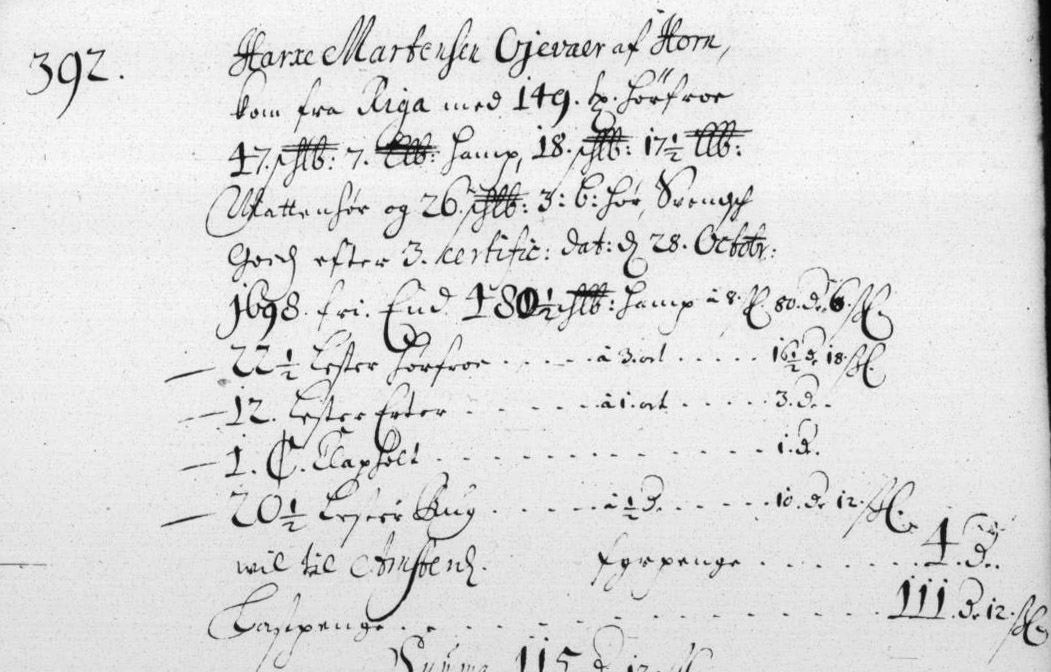 392.
Harre Martensen Gjevaer af Horn,
kom fra Riga med 149. tp. hörfroe
47. schlb: 7. llb: hamp, 18. schlb: 17½ llb:
Wattenhör og 26. schlb: 3: b: hör, Svensch
Goed efter 3. certific: dat: d 28. Octobr:
1698. fri. End 480½ schlb: hamp à 8 sl. 80. d. 6 sl.
— 22½ Lester hörfroe . . . . . à 3. ort . . . . . 16½ d. 18. sl.
— 12. Lester Erter . . . . . . à 1. ort . . . . . 3. d.
— 1. C. Clapholt . . . . . . . . . . . . 1. d.
— 20½ Lester Rug . . . . . à ½ d. . . . . . 10. d. 12. sl.
wil til Amsterd. fyrpenge . . . . . . . 4. d.
Lastpenge . . . . . . . . . . . . . 111. d. 12. sl.
Summa 115 d. 12 sl.